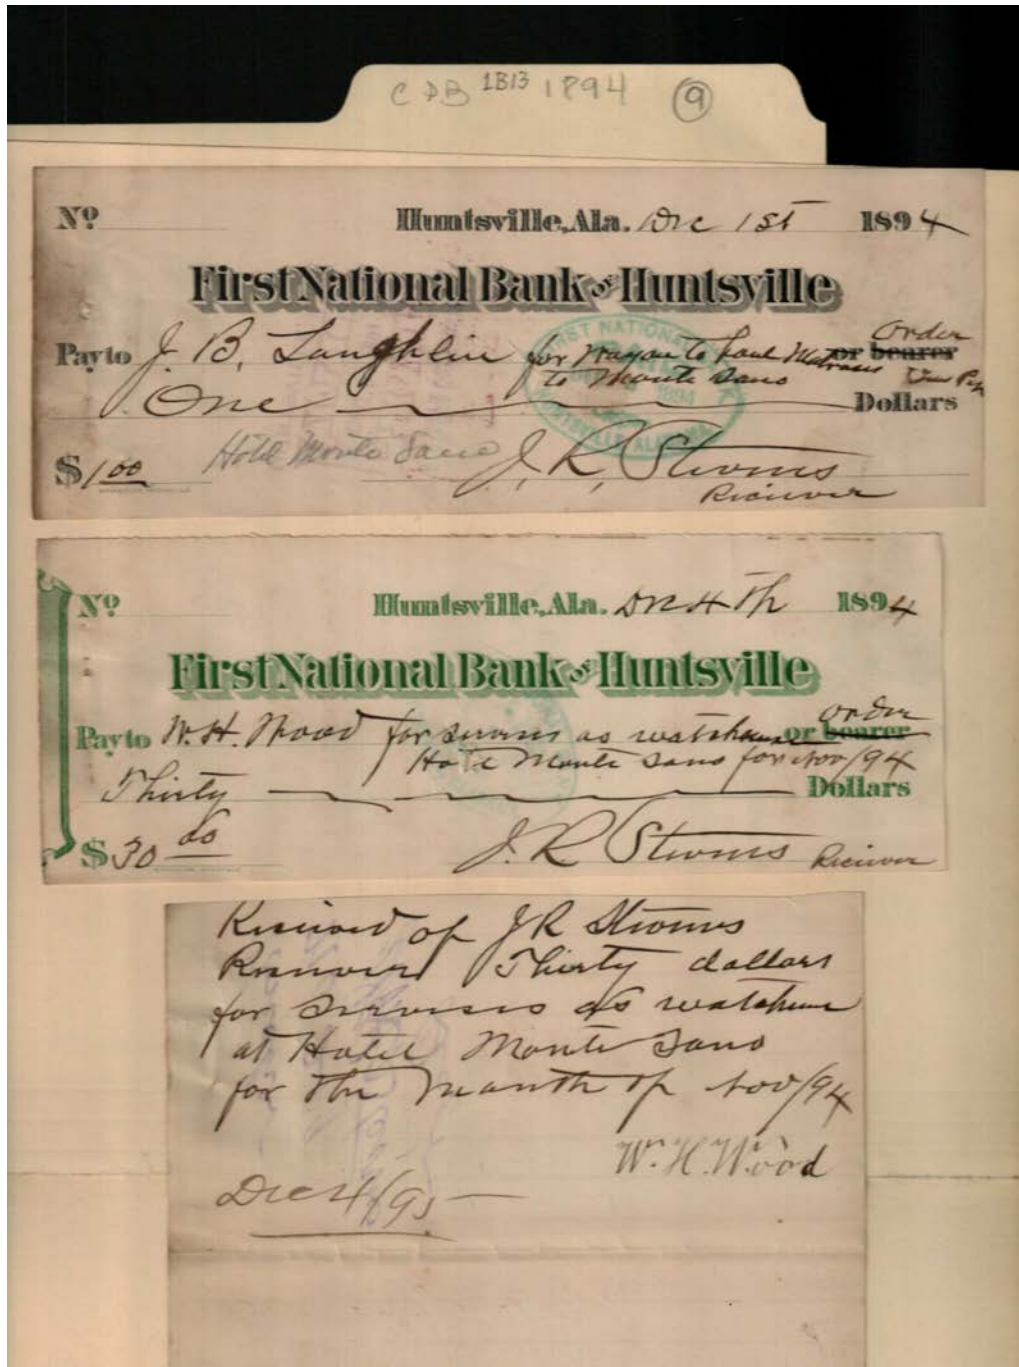 CDB 1B13 1894 9
No Huntsville, Ala. Dec 1st 1894
First National Bank of Huntsville
Order
Pay to J. B. Laughlin for wagon to haul or bearer
to Monte Sano
One Dollars
1894
$1 00 Hotel Monte Sano J. R. Stevens
Receiver
No Huntsville, Ala. Dec 4th 1894
First National Bank of Huntsville
order
Pay to W. H. Wood for services as watchman or bearer
Hotel Monte Sano for Nov/94
Thirty Dollars
$30 00 J. R. Stevens Receiver
Received of J R Stevens
Receiver Thirty dollars
for services as watchman
at Hotel Monte Sano
for the month of Nov/94
W. H. Wood
Dec 4/95